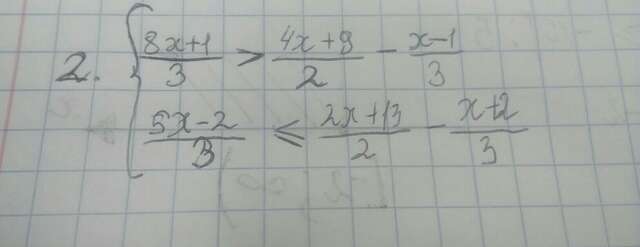 2. { (8x+1)/3 > (4x+9)/2 - (x-1)/3
(5x-2)/3 ≤ (2x+13)/2 - (x+2)/3